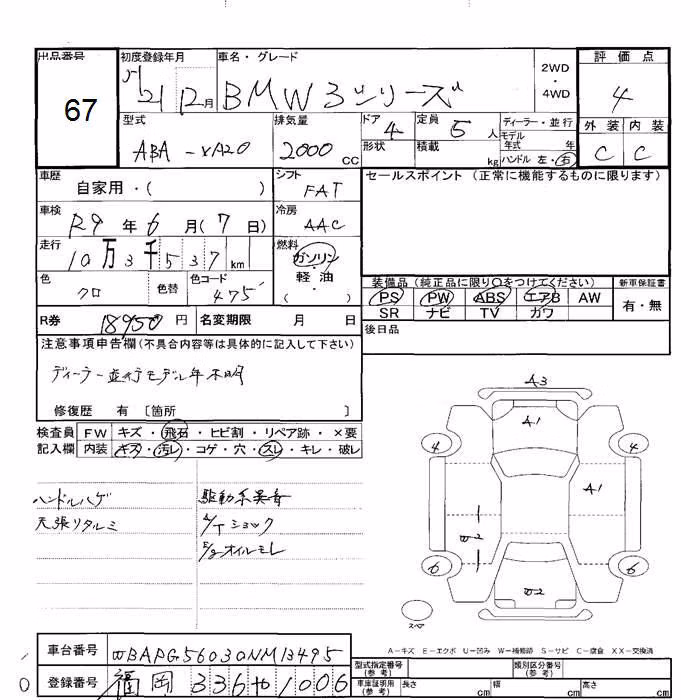 出品番号 67
初度登録年月 H 21 12月
車名・グレード BMW 3シリーズ
2WD ・ 4WD
評価点 4
外装 C 内装 C
型式 ABA-VA20
排気量 2000 cc
ドア 4
形状
定員 5 人
積載 kg
ディーラー・並行
モデル年式 年
ハンドル 左・右
車歴 自家用・( )
シフト FAT
セールスポイント(正常に機能するものに限ります)
車検 R9 年 6 月(7 日)
冷房 AAC
走行 10万3千537 km
燃料 ガソリン・軽油 ( )
色 クロ 色替 色コード 475
装備品(純正品に限り○をつけてください) 新車保証書
PS PW ABS エアB AW 有・無
SR ナビ TV カワ
R券 18950 円 名変期限 月 日
後日品
注意事項申告欄(不具合内容等は具体的に記入して下さい)
ディーラー並行モデル年不明
修復歴 有 〔箇所 〕
検査員 FW キズ・飛石・ヒビ割・リペア跡・×要
記入欄 内装 キズ・汚レ・コゲ・穴・スレ・キレ・破レ
ハンドルハゲ 駆動系異音
天張リタルミ A/Tショック
E/gオイルモレ
A3
A1
4 4
A1
W2
6 6
W2
スペア
A-キズ E-エクボ U-凹み W-補修跡 S-サビ C-腐食 XX-交換済
車台番号 WBAPG56030NM13495
登録番号 福岡 336 や 1006
型式指定番号(参考) 類別区分番号(参考)
車庫証明用(参考) 長さ cm 幅 cm 高さ cm